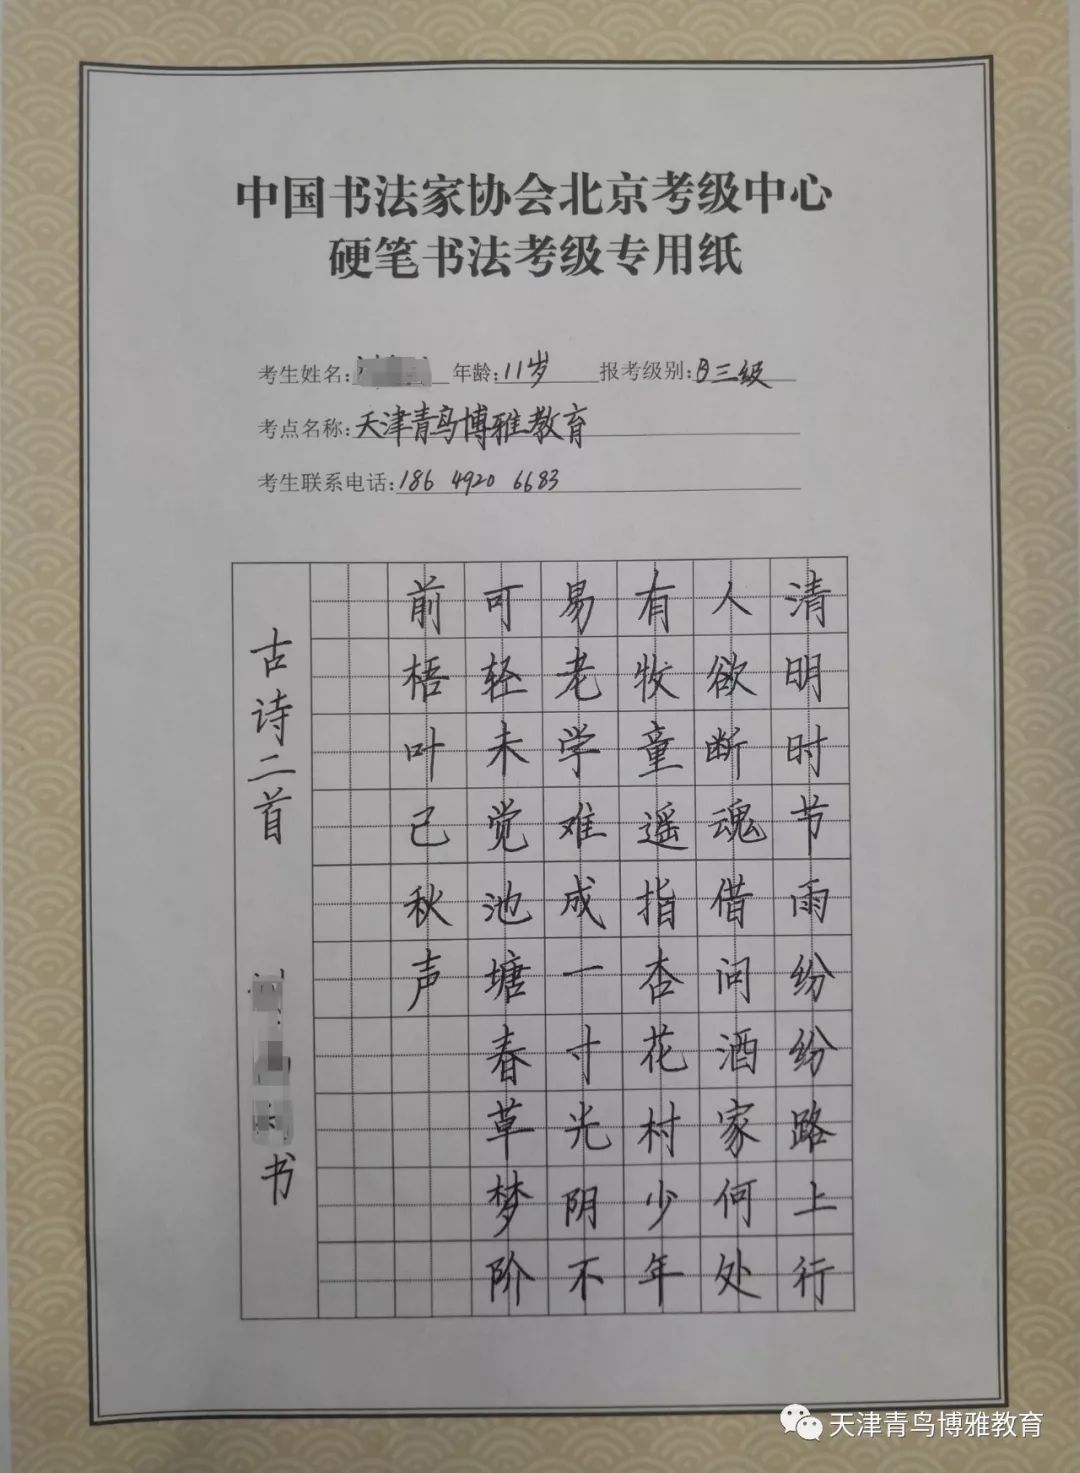 中国书法家协会北京考级中心
硬笔书法考级专用纸
考生姓名: 年龄:11岁 报考级别:B三级
考点名称:天津青鸟博雅教育
考生联系电话:186 4920 6683
清明时节雨纷纷路上行
人欲断魂借问酒家何处
有牧童遥指杏花村少年
易老学难成一寸光阴不
可轻未觉池塘春草梦阶
前梧叶己秋声
古诗二首
书
天津青鸟博雅教育